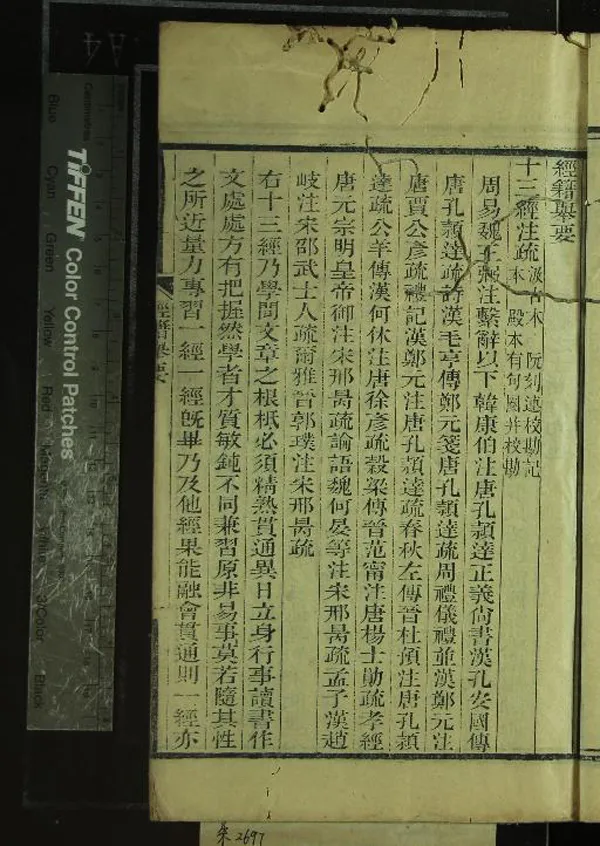 經籍舉要
十三經注疏 汲古本 阮刻連校勘記
本 殿本有句圈并校勘
周易魏王弼注繫辭以下韓康伯注唐孔穎達正義尚書漢孔安國傳
唐孔穎達疏詩漢毛亨傳鄭元箋唐孔穎達疏周禮儀禮並漢鄭元注
唐賈公彥疏禮記漢鄭元注唐孔穎達疏春秋左傳晉杜預注唐孔穎
達疏公羊傳漢何休注唐徐彥疏穀梁傳晉范甯注唐楊士勛疏孝經
唐元宗明皇帝御注宋邢昺疏論語魏何晏等注宋邢昺疏孟子漢趙
岐注宋邵武士人疏爾雅晉郭璞注宋邢昺疏
右十三經乃學問文章之根柢必須精熟貫通異日立身行事讀書作
文處處方有把握然學者才質敏鈍不同兼習原非易事莫若隨其性
之所近量力專習一經一經既畢乃及他經果能融會貫通則一經亦
經籍舉要
TIFFEN Color Control Patches
Centimetres
Blue
Cyan
Green
Yellow
Red
Magenta
White
3/Color
Black
A4
朱2697